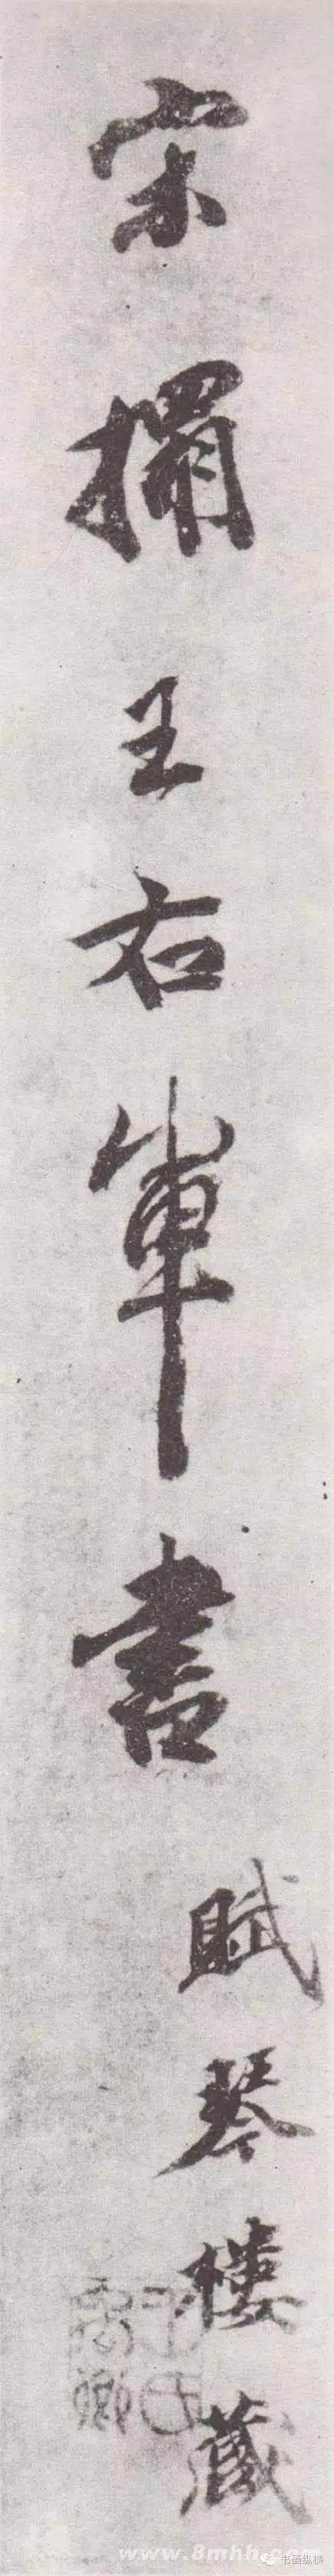 宋搨王右軍書
賦琴樓藏
禹卿
www.8mhh.co
书画纵横